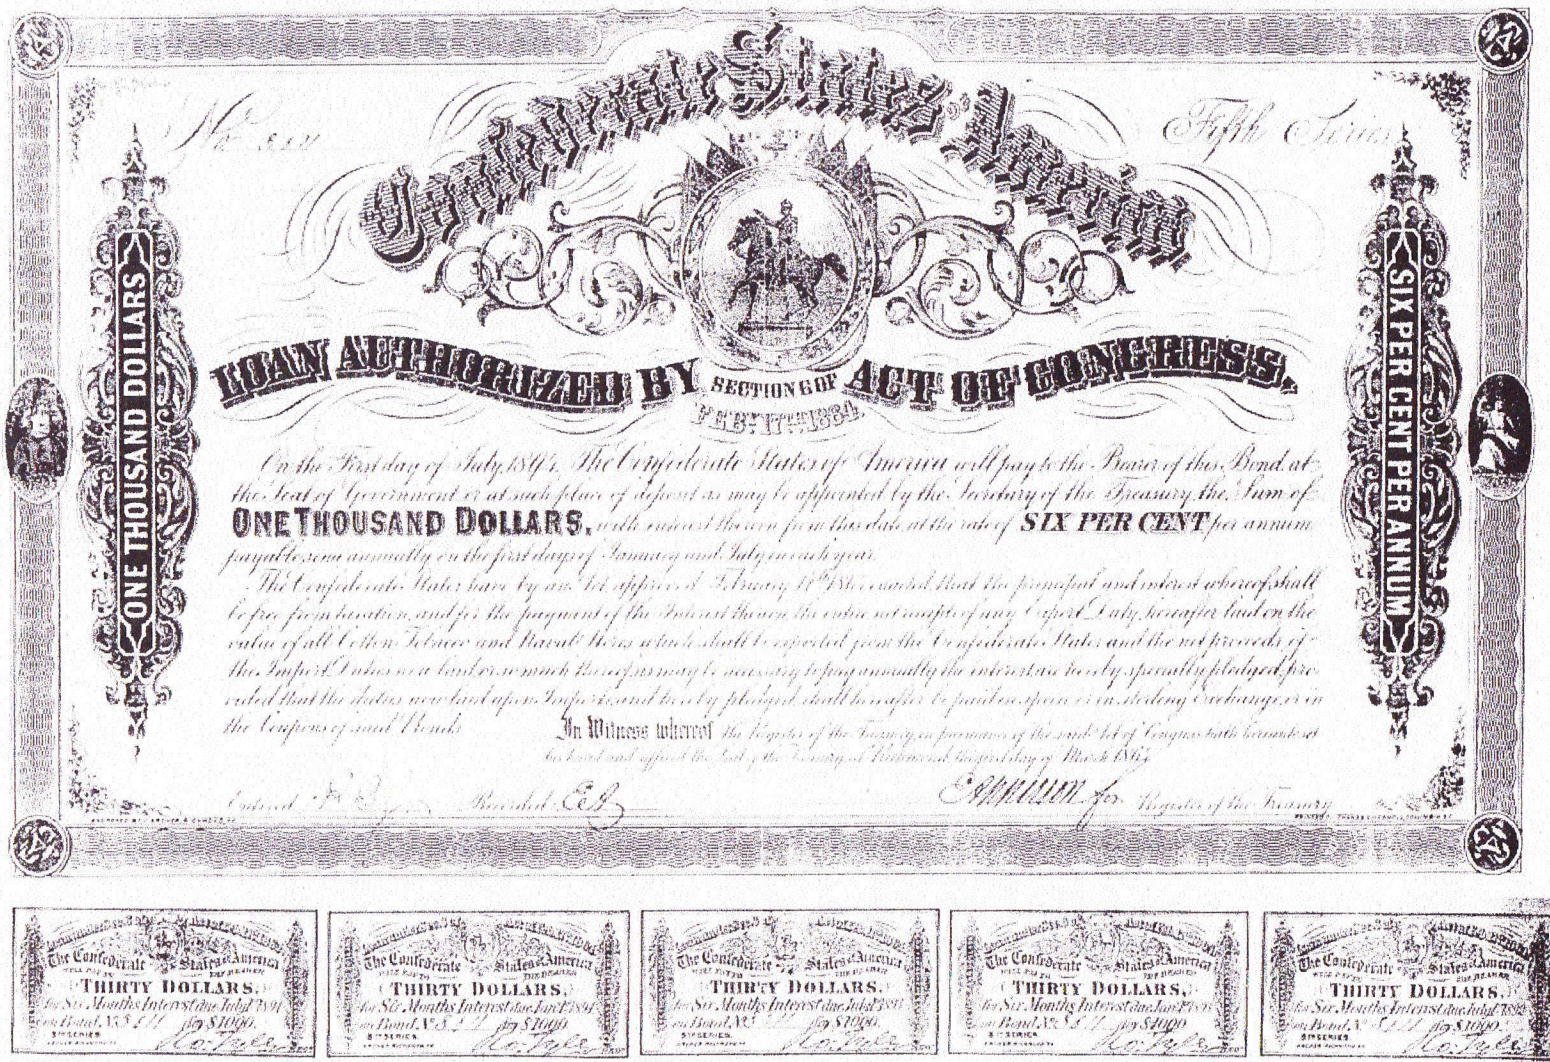 Confederate States of America
No
Fifth Series
ONE THOUSAND DOLLARS
SIX PER CENT PER ANNUM
LOAN AUTHORIZED BY SECTION 6 OF ACT OF CONGRESS,
FEBY. 17TH 1864
On the First day of July, 1894, The Confederate States of America will pay to the Bearer of this Bond, at
the Seat of Government or at such place of deposit as may be appointed by the Secretary of the Treasury, the Sum of
ONE THOUSAND DOLLARS, with interest thereon from this date, at the rate of SIX PER CENT per annum
payable semi annually on the first days of January and July in each year.
The Confederate States have by an Act approved February 17th 1864 enacted that the principal and interest whereof shall
be free from taxation, and for the payment of the Interest thereon the entire net receipts of any Export Duty, hereafter laid on the
value of all Cotton Tobacco and Naval Stores which shall be exported from the Confederate States and the net proceeds of
the Import Duties now laid or so much thereof as may be necessary to pay annually the interest are hereby specially pledged, pro
vided that the duties now laid upon Imports and hereby pledged shall hereafter be paid in specie or in sterling Exchange, or in
the Coupons of said Bonds.
In Witness whereof the Register of the Treasury in pursuance of the said Act of Congress hath hereunto set
his hand and affixed the Seal of the Treasury at Richmond, this day of March 186
Entered
Recorded
for Register of the Treasury
The Confederate States of America
WILL PAY TO THE BEARER
THIRTY DOLLARS,
for Six Months Interest due July 1st
on Bond No for $1000.
5TH SERIES
Ro. Tyler
The Confederate States of America
WILL PAY TO THE BEARER
THIRTY DOLLARS,
for Six Months Interest due Jany 1st
on Bond No for $1000.
5TH SERIES
Ro. Tyler
The Confederate States of America
WILL PAY TO THE BEARER
THIRTY DOLLARS,
for Six Months Interest due July 1st
on Bond No for $1000.
5TH SERIES
Ro. Tyler
The Confederate States of America
WILL PAY TO THE BEARER
THIRTY DOLLARS,
for Six Months Interest due Jany 1st
on Bond No for $1000.
5TH SERIES
Ro. Tyler
The Confederate States of America
WILL PAY TO THE BEARER
THIRTY DOLLARS,
for Six Months Interest due July 1st
on Bond No for $1000.
5TH SERIES
Ro. Tyler